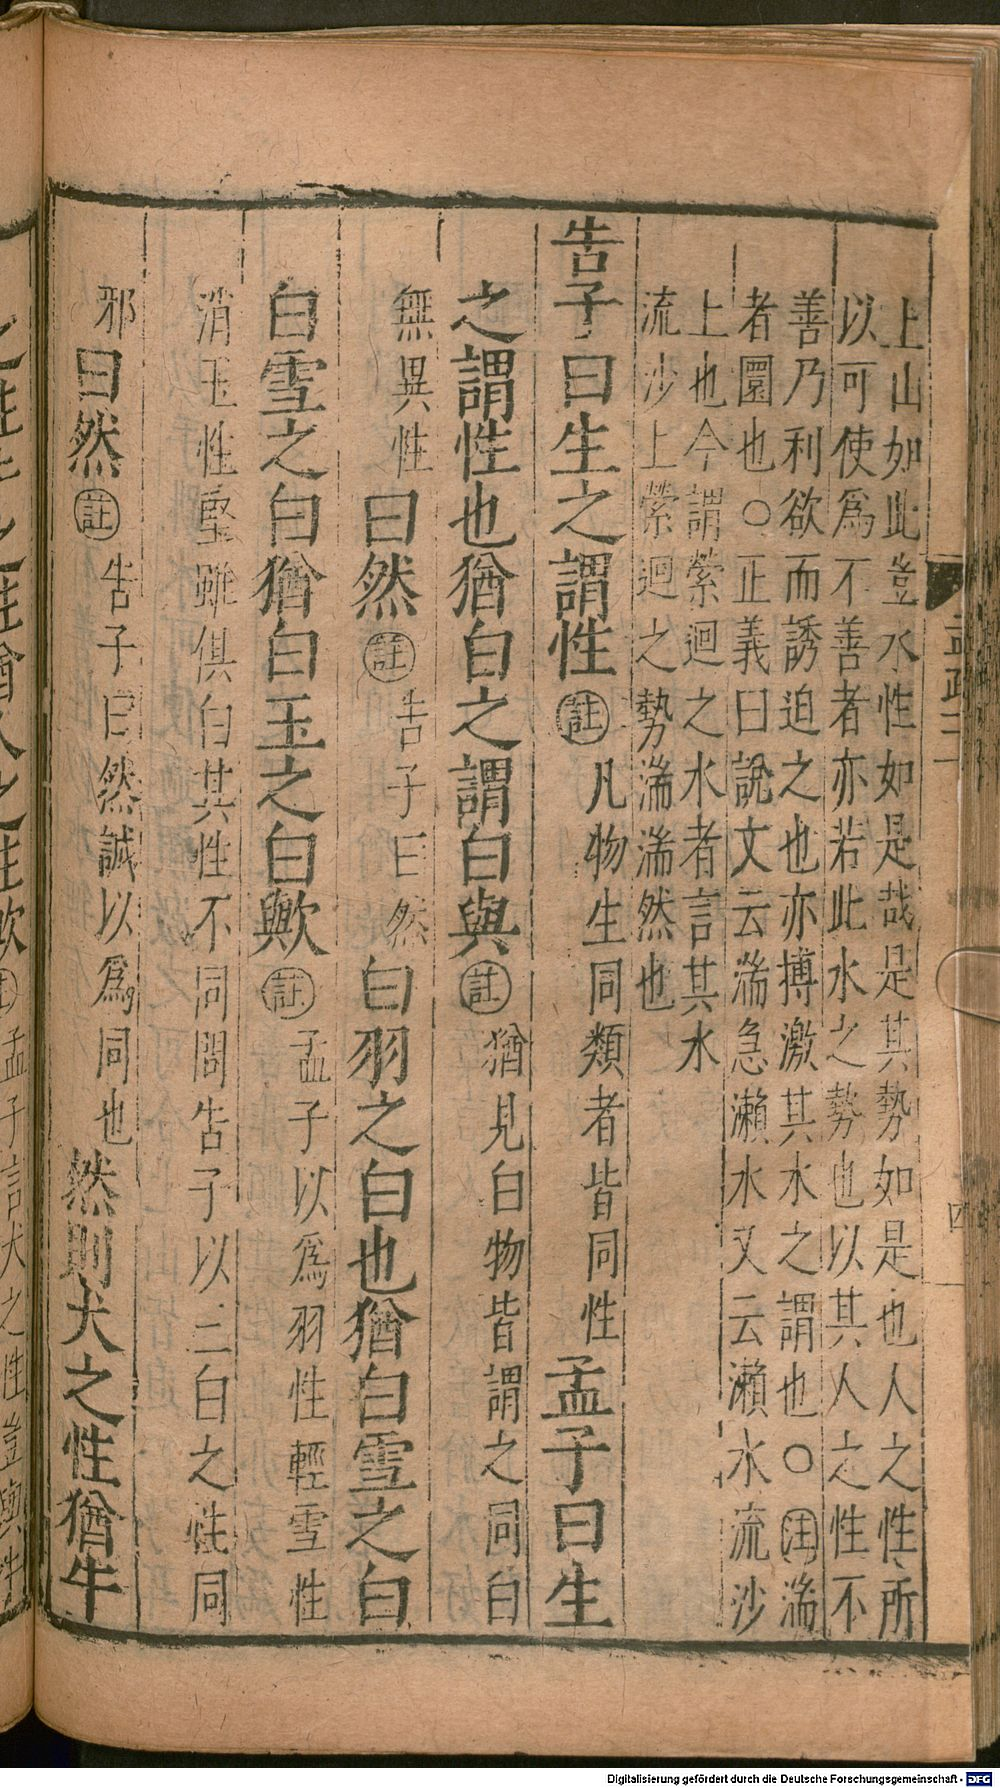 上山如此豈水性如是哉是其勢如是也人之性所
以可使爲不善者亦若此水之勢也以其人之性不
善乃利欲而誘迫之也亦搏激其水之謂也○註湍
者圜也○正義曰說文云湍急瀨水又云瀨水流沙
上也今謂縈迴之水者言其水
流沙上縈迴之勢湍湍然也
告子曰生之謂性註凡物生同類者皆同性孟子曰生
之謂性也猶白之謂白與註猶見白物皆謂之同白
無異性曰然註告子曰然白羽之白也猶白雪之白
白雪之白猶白玉之白歟註孟子以爲羽性輕雪性
消玉性堅雖俱白其性不同問告子以三白之性同
邪曰然註告子曰然誠以爲同也然則犬之性猶牛
之性牛之性猶人之性歟註孟子言犬之性豈與牛
孟疏
四
Digitalisierung gefördert durch die Deutsche Forschungsgemeinschaft - DFG